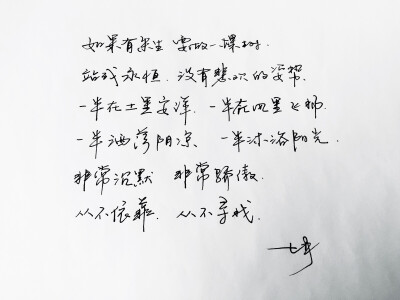 如果有来生 要做一棵树.
站成永恒. 没有悲欢的姿势.
一半在土里安详. 一半在风里飞扬.
一半洒落阴凉. 一半沐浴阳光.
非常沉默 非常骄傲.
从不依靠. 从不寻找.